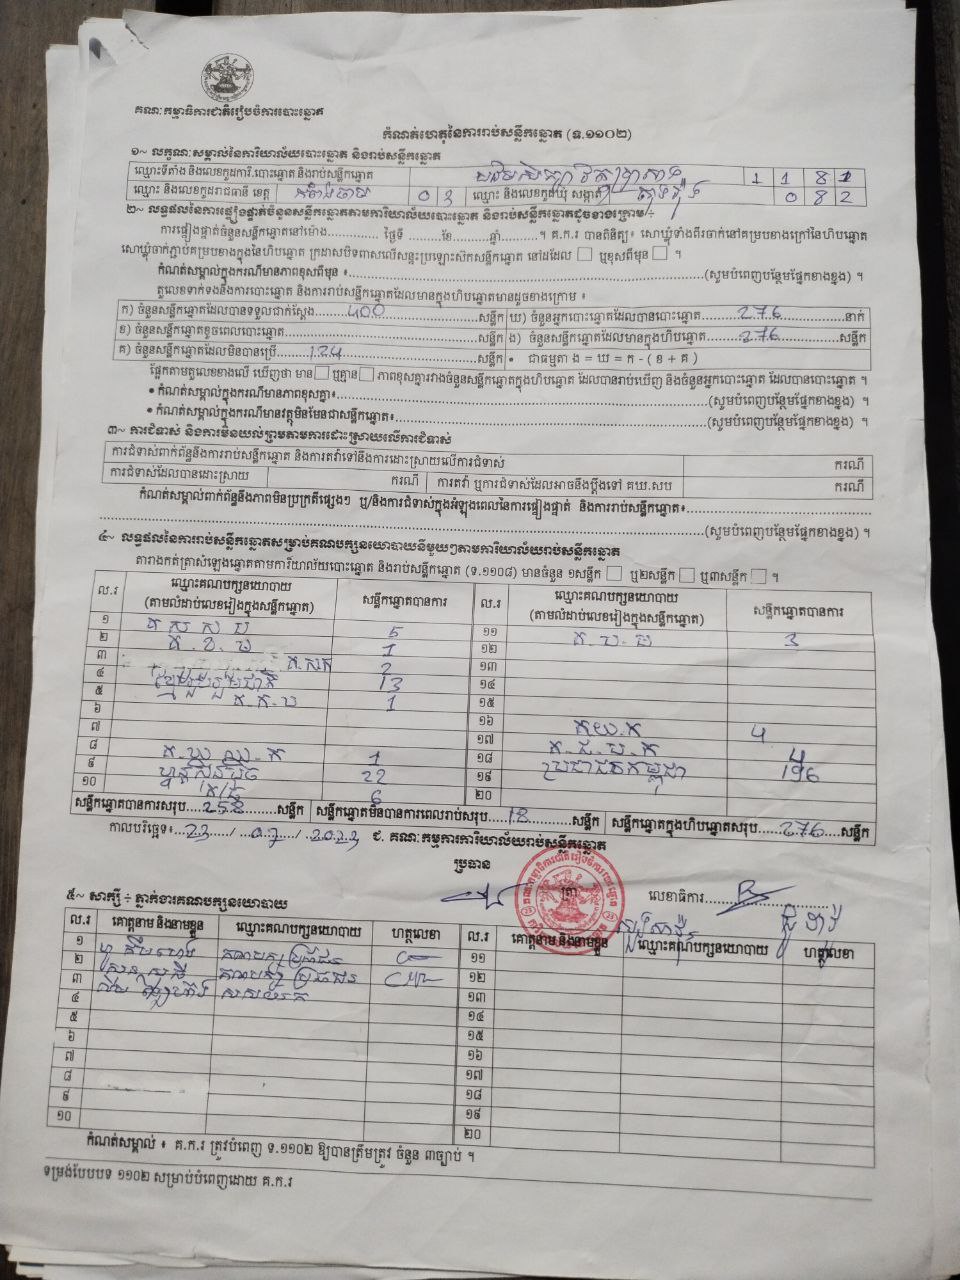 គណៈកម្មាធិការជាតិរៀបចំការបោះឆ្នោត
កំណត់ហេតុនៃការរាប់សន្លឹកឆ្នោត (ទ.១១០២)
១~ លក្ខណៈសម្គាល់នៃការិយាល័យបោះឆ្នោត និងរាប់សន្លឹកឆ្នោត
ឈ្មោះទីតាំង និងលេខកូដការិ.បោះឆ្នោត និងរាប់សន្លឹកឆ្នោត 1 1 8 1
ឈ្មោះ និងលេខកូដរាជធានី ខេត្ត កំពង់ចាម 0 3 ឈ្មោះ និងលេខកូដឃុំ សង្កាត់ 0 8 2
២~ លទ្ធផលនៃការផ្ទៀងផ្ទាត់ចំនួនសន្លឹកឆ្នោតតាមការិយាល័យបោះឆ្នោត និងរាប់សន្លឹកឆ្នោតដូចខាងក្រោម÷
ការផ្ទៀងផ្ទាត់ចំនួនសន្លឹកឆ្នោតនៅម៉ោង............... ថ្ងៃទី .........ខែ..........ឆ្នាំ..........។ គ.ក.រ បានពិនិត្យ៖ សោឃ្លុំទាំងពីរចាក់នៅគម្របខាងក្រៅនៃហិបឆ្នោត
សោឃ្លុំចាក់ភ្ជាប់គម្របខាងក្នុងនៃហិបឆ្នោត ក្រដាសបិទពាសលើសន្ទះប្រឡោះសិកសន្លឹកឆ្នោត នៅដដែល ឬខុសពីមុន ។
កំណត់សម្គាល់ក្នុងករណីមានភាពខុសពីមុន ៖..........(សូមបំពេញបន្ថែមផ្នែកខាងខ្នង) ។
តួលេខទាក់ទងនឹងការបោះឆ្នោត និងការរាប់សន្លឹកឆ្នោតដែលមានក្នុងហិបឆ្នោតមានដូចខាងក្រោម ៖
ក) ចំនួនសន្លឹកឆ្នោតដែលបានទទួលជាក់ស្ដែង.......400..........សន្លឹក ឃ) ចំនួនអ្នកបោះឆ្នោតដែលបានបោះឆ្នោត.......276..........នាក់
ខ) ចំនួនសន្លឹកឆ្នោតខូចពេលបោះឆ្នោត..........សន្លឹក ង) ចំនួនសន្លឹកឆ្នោតដែលមានក្នុងហិបឆ្នោត.......276..........សន្លឹក
គ) ចំនួនសន្លឹកឆ្នោតដែលមិនបានប្រើ.......124..........សន្លឹក • ជាធម្មតា ង = ឃ = ក - ( ខ + គ )
ផ្អែកតាមតួលេខខាងលើ ឃើញថា មាន ឬគ្មាន ភាពខុសគ្នារវាងចំនួនសន្លឹកឆ្នោតក្នុងហិបឆ្នោត ដែលបានរាប់ឃើញ និងចំនួនអ្នកបោះឆ្នោត ដែលបានបោះឆ្នោត ។
• កំណត់សម្គាល់ក្នុងករណីមានភាពខុសគ្នា៖..........(សូមបំពេញបន្ថែមផ្នែកខាងខ្នង) ។
• កំណត់សម្គាល់ក្នុងករណីមានវត្ថុមិនមែនជាសន្លឹកឆ្នោត៖..........(សូមបំពេញបន្ថែមផ្នែកខាងខ្នង) ។
៣~ ការជំទាស់ និងការមិនយល់ព្រមតាមការដោះស្រាយលើការជំទាស់
ការជំទាស់ពាក់ព័ន្ធនឹងការរាប់សន្លឹកឆ្នោត និងការតវ៉ាទៅនឹងការដោះស្រាយលើការជំទាស់ ករណី
ការជំទាស់ដែលបានដោះស្រាយ ករណី ការតវ៉ា ឬការជំទាស់ដែលអាចនឹងប្ដឹងទៅ គឃ.សប ករណី
កំណត់សម្គាល់ពាក់ព័ន្ធនឹងភាពមិនប្រក្រតីផ្សេងៗ ឬ/និងការជំទាស់ក្នុងអំឡុងពេលនៃការផ្ទៀងផ្ទាត់ និងការរាប់សន្លឹកឆ្នោត៖..........
..........(សូមបំពេញបន្ថែមផ្នែកខាងខ្នង) ។
៤~ លទ្ធផលនៃការរាប់សន្លឹកឆ្នោតសម្រាប់គណបក្សនយោបាយនីមួយៗតាមការិយាល័យរាប់សន្លឹកឆ្នោត
តារាងកត់ត្រាសំឡេងឆ្នោតតាមការិយាល័យបោះឆ្នោត និងរាប់សន្លឹកឆ្នោត (ទ.១១០៨) មានចំនួន ១សន្លឹក ឬ២សន្លឹក ឬ៣សន្លឹក ។
ល.រ ឈ្មោះគណបក្សនយោបាយ (តាមលំដាប់លេខរៀងក្នុងសន្លឹកឆ្នោត) សន្លឹកឆ្នោតបានការ ល.រ ឈ្មោះគណបក្សនយោបាយ (តាមលំដាប់លេខរៀងក្នុងសន្លឹកឆ្នោត) សន្លឹកឆ្នោតបានការ
១ គ ស ស ប 5 ១១ គ.ប.ធ 3
២ គ.ខ.ប 1 ១២
៣ 2 ១៣
៤ ខ្មែររួបរួមជាតិ 13 ១៤
៥ គ.ក.ប 1 ១៥
៦ ១៦ គយ.ក 4
៧ ១៧ គ.ជ.ប.ក 4
៨ គ.ឃ.ឈ.ក 1 ១៨ ប្រជាជនកម្ពុជា 196
៩ ហ៊្វុនស៊ិនប៉ិច 22 ១៩
១០ 6 ២០
សន្លឹកឆ្នោតបានការសរុប....258..........សន្លឹក សន្លឹកឆ្នោតមិនបានការពេលរាប់សរុប....18..........សន្លឹក សន្លឹកឆ្នោតក្នុងហិបឆ្នោតសរុប....276.....សន្លឹក
កាលបរិច្ឆេទ៖...23.../...07.../...2023 ជ. គណៈកម្មការការិយាល័យរាប់សន្លឹកឆ្នោត
ប្រធាន
ត្រា លេខាធិការ..........
៥~ សាក្សី ÷ ភ្នាក់ងារគណបក្សនយោបាយ
ល.រ គោត្តនាម និងនាមខ្លួន ឈ្មោះគណបក្សនយោបាយ ហត្ថលេខា ល.រ គោត្តនាម និងនាមខ្លួន ឈ្មោះគណបក្សនយោបាយ ហត្ថលេខា
១ គណបក្ស ប្រជាជន ១១
២ គណបក្ស ប្រជាជន ១២
៣ ១៣
៤ ១៤
៥ ១៥
៦ ១៦
៧ ១៧
៨ ១៨
៩ ១៩
១០ ២០
កំណត់សម្គាល់ ៖ គ.ក.រ ត្រូវបំពេញ ទ.១១០២ ឱ្យបានត្រឹមត្រូវ ចំនួន ៣ច្បាប់ ។
ទម្រង់បែបបទ ១១០២ សម្រាប់បំពេញដោយ គ.ក.រ